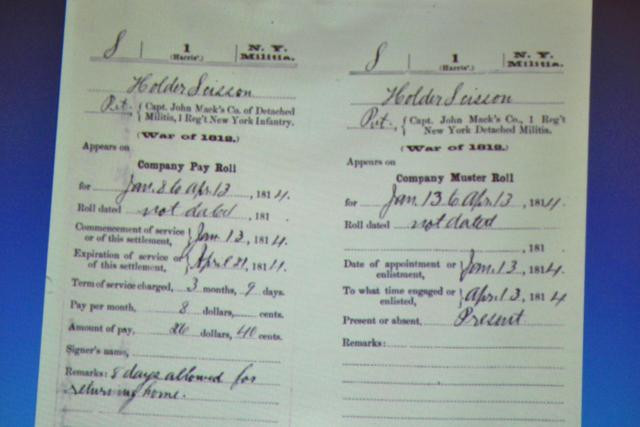 S | 1 (Harris'.) | N. Y. Militia.
Holder Sisson
Pvt., { Capt. John Mack's Co. of Detached
Militia, 1 Reg't New York Infantry.
(War of 1812.)
Appears on
Company Pay Roll
for Jan. 8 to Apr. 13, 1814.
Roll dated not dated, 181 .
Commencement of service
or of this settlement, } Jan 13, 1814.
Expiration of service or
of this settlement, } April 21, 1814.
Term of service charged, 3 months, 9 days.
Pay per month, 8 dollars, cents.
Amount of pay, 26 dollars, 40 cents.
Signer's name,
Remarks: 8 days allowed for
returning home.
S | 1 (Harris'.) | N. Y. Militia.
Holder Sisson
Pvt., { Capt. John Mack's Co., 1 Reg't
New York Detached Militia.
(War of 1812.)
Appears on
Company Muster Roll
for Jan. 13 to Apr. 13, 1814.
Roll dated not dated
, 181
Date of appointment or
enlistment, } Jan. 13, 1814.
To what time engaged or
enlisted, } Apr. 13, 1814
Present or absent, Present
Remarks: